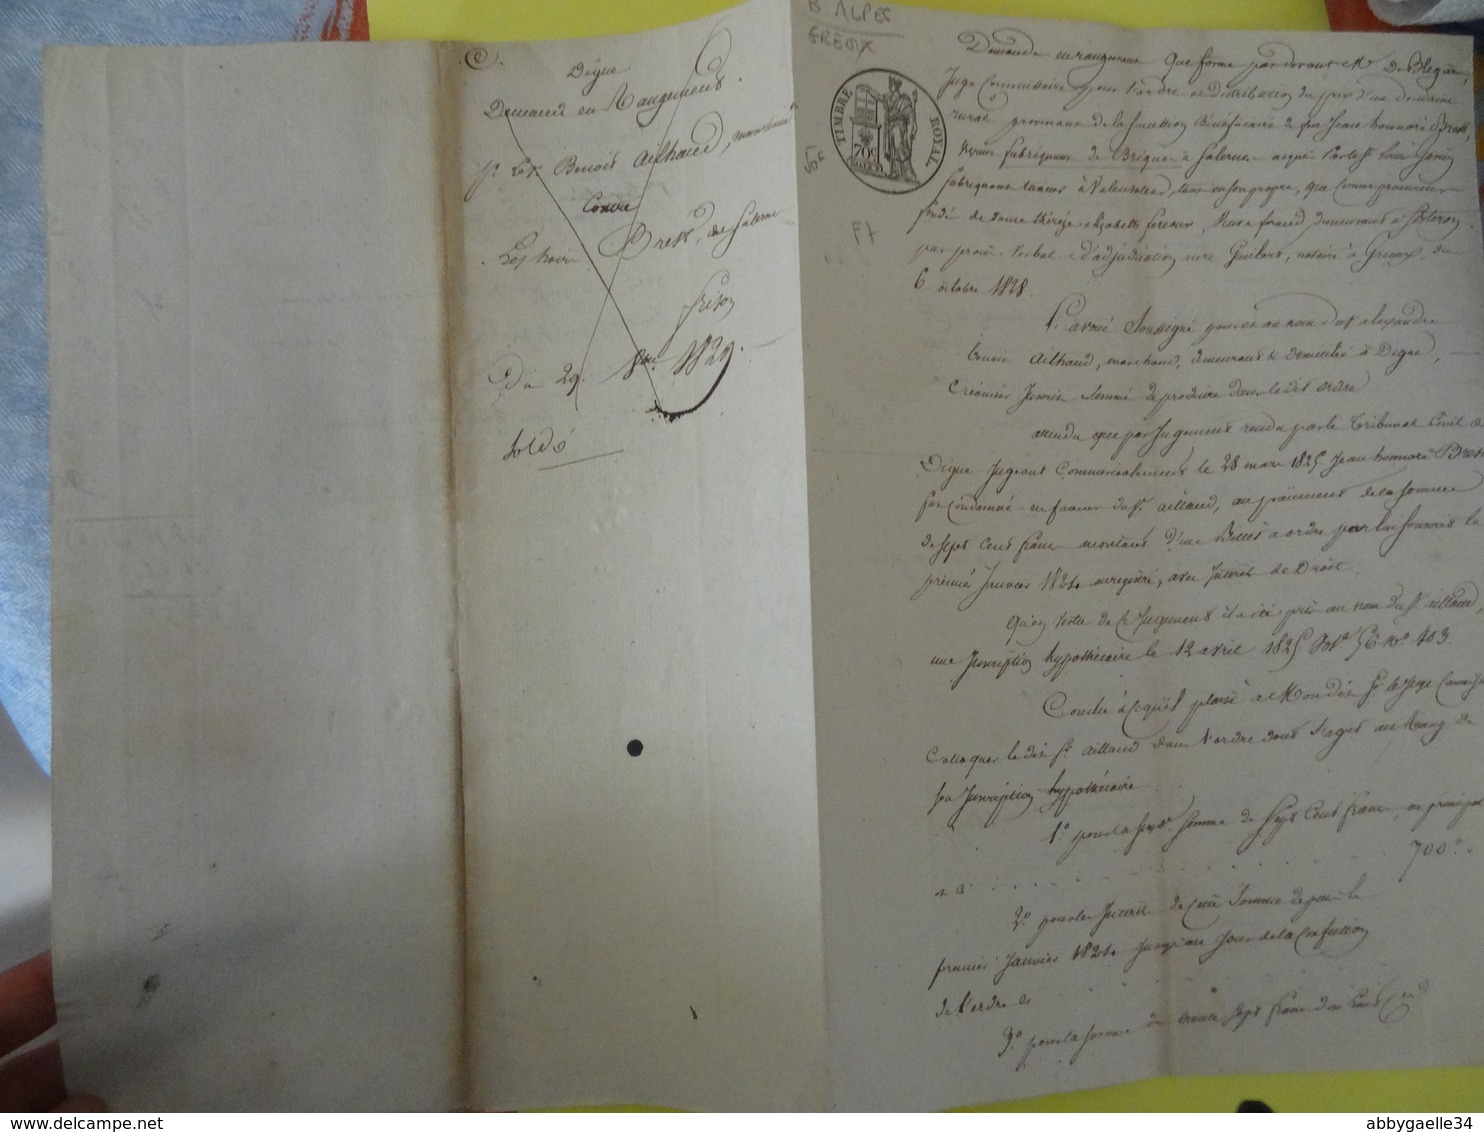 B. ALPES
GREOUX
TIMBRE ROYAL
70c
F7
Digne
Demande en Rangement
Sr. Lex. Benoit Ailhaud, marchand
Contre
Les hoirs Brest, de Salerne
Frison
Du 29. 8bre. 1829.
Soldé
Demande en rangement que forme par devant M. De
Juge Commissaire pour l'ordre et distribution du prix d'un domaine
rural provenant de la succession Bénéficiaire de feu Jean honnoré Brest,
vivant fabriquant de Briques à Salernes acquis par le Sr. Louis
fabriquant tanneur à Valensolle, tant en son propre, que comme procureur
fondé de dame thérèze elizabeth Veuve demeurant à Sisteron
par procès verbal d'adjudication rière Guibert, notaire à Greoux, du
6 octobre 1828.
L'avoué soussigné pour et au nom du Sr alexandre
benoit Ailhaud, marchand, demeurant & domicilié à Digne,
Créancier Inscrit sommé de produire dans le dit ordre
attendu que par Jugement rendu par le Tribunal Civil de
Digne Jugeant Commercialement le 28 mars 1825 Jean honnoré Brest
fut Condamné en faveur du Sr. aillaud, au paiement de la somme
de sept Cent francs montant d'un Billet à ordre par lui souscrit le
premier Janvier 1824 enregistré, avec Intérêts de Droit.
Qu'en vertu de ce Jugement il a été pris au nom du Sr aillaud,
une Inscription hypothécaire le 12 avril 1825 Vol. 56 No. 403.
Conclu à ce qu'il plaise à Mondit Sr le Juge Commissaire
Colloquer le dit Sr. aillaud dans l'ordre dont s'agit au Rang de
son Inscription hypothécaire
1o. pour la susde. somme de sept Cent francs, en principal
Ci . . . . . . 700. "
2o. pour les Intérêts de cette somme depuis le
premier Janvier 1824 jusqu'au Jour de la Confection
de l'ordre Ci
3o. pour la somme de trente sept francs
abbygaelle34